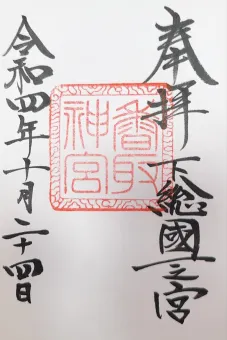 奉拝
下総國一之宮
香取
神宮
令和四年十一月二十四日